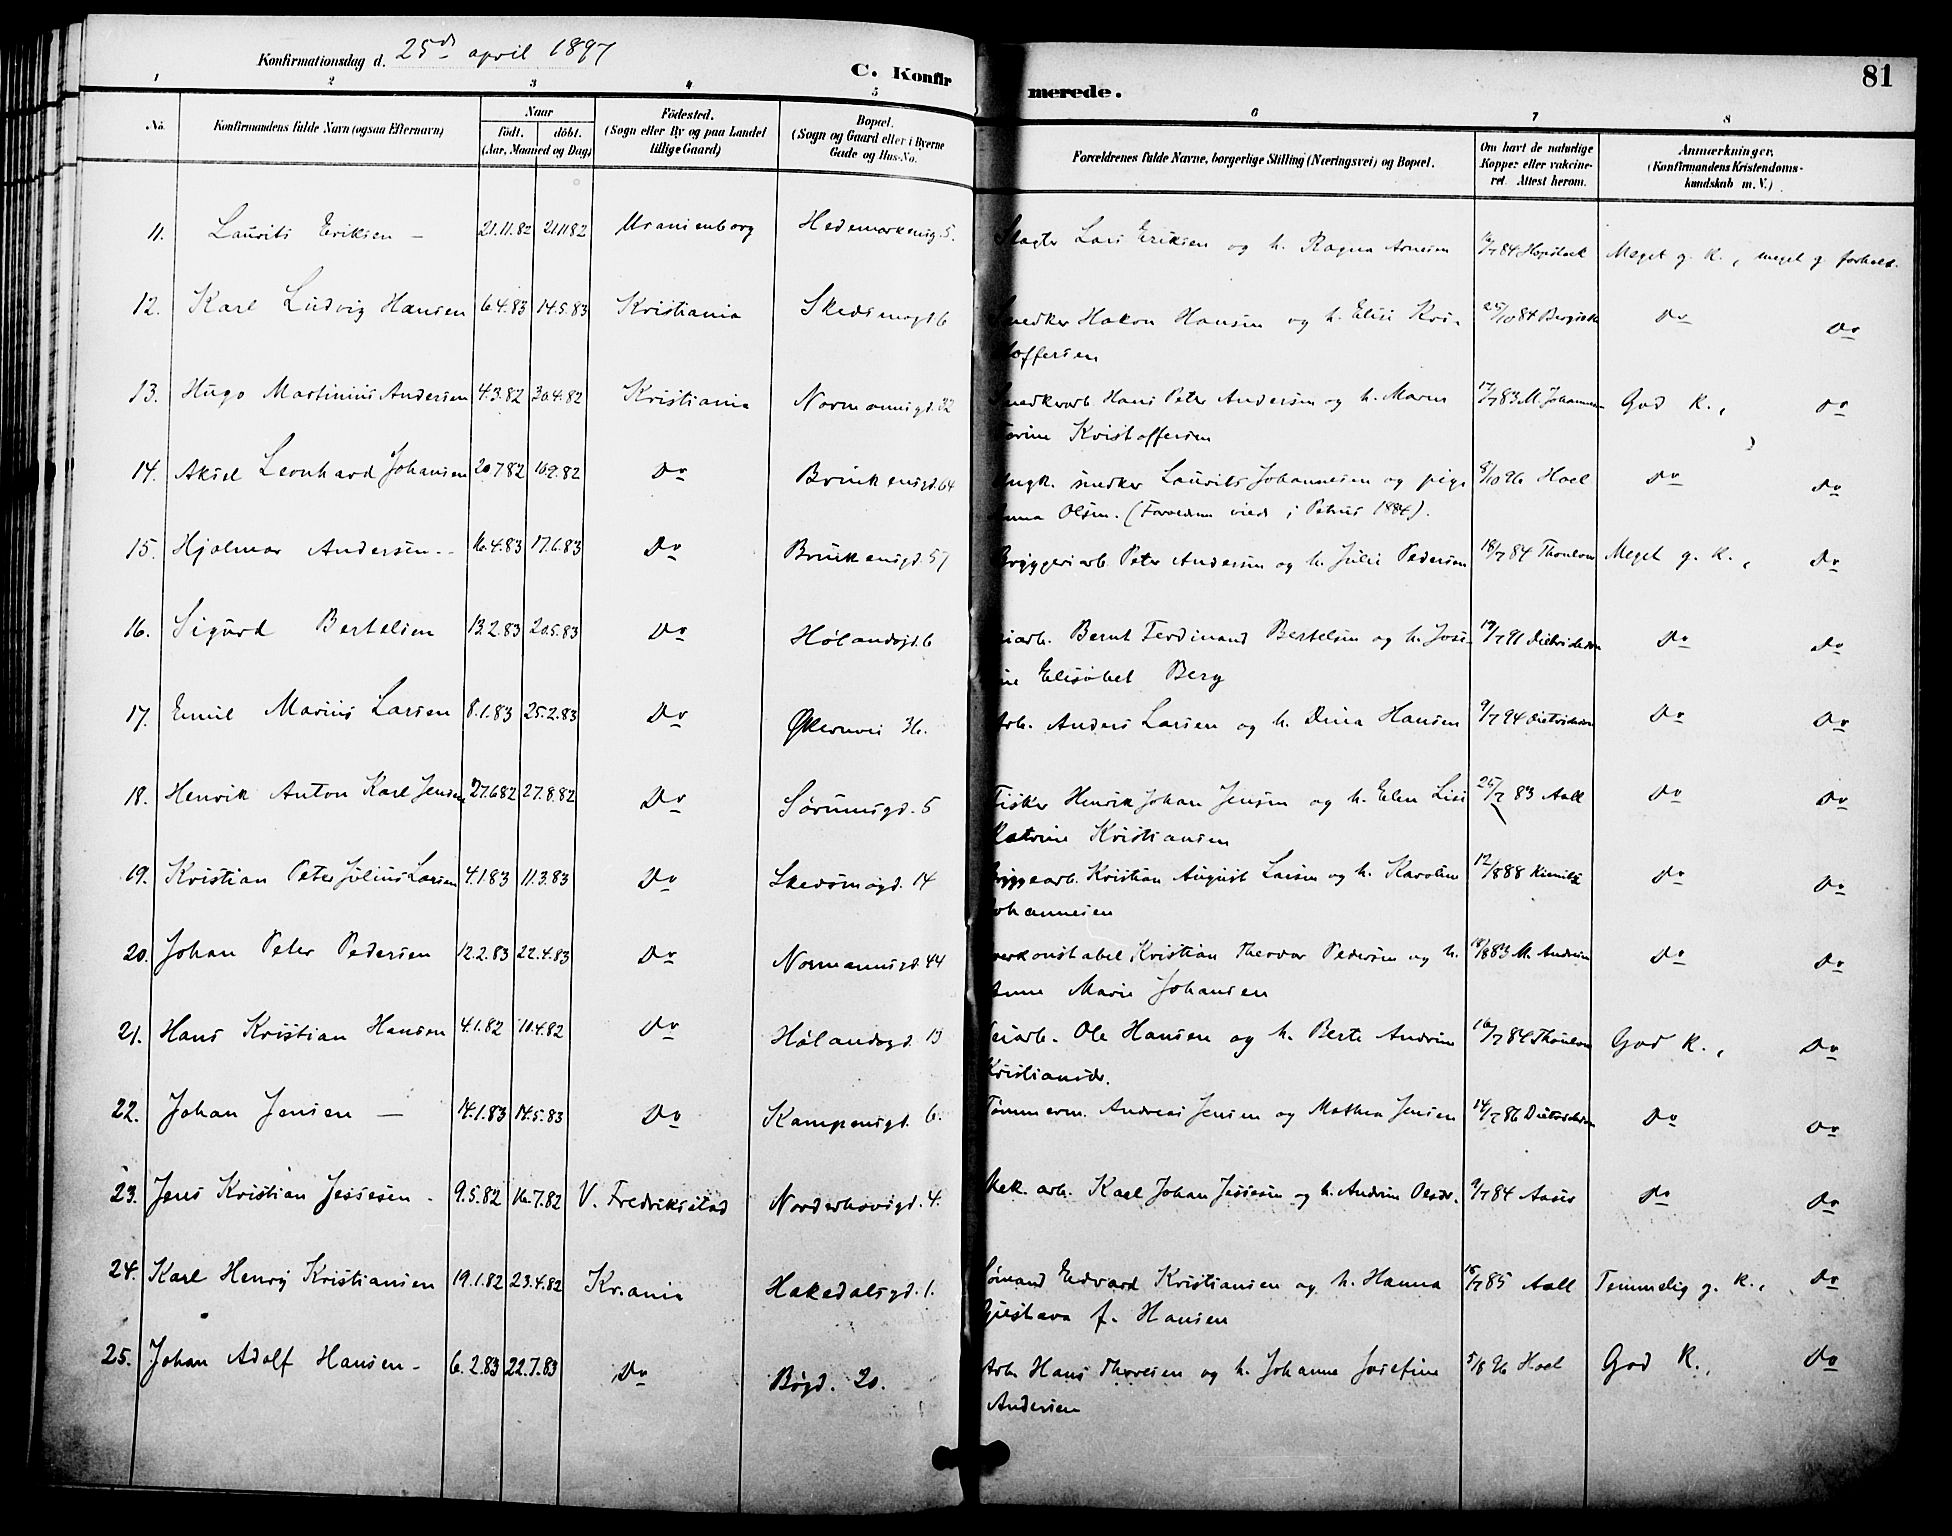 Konfirmationsdag d. 25de april 1897
C. Konfirmerede.
81
1 2 3 4 5 6 7 8
No.
Konfirmandens fulde Navn (ogsaa Efternavn)
Naar
födt. döbt.
(Aar, Maaned og Dag)
Födested.
(Sogn eller By og paa Landet
tillige Gaard)
Bopæl.
(Sogn og Gaard eller i Byerne
Gade og Hus-No.
Forældrenes fulde Navne, borgerlige Stilling (Næringsvei) og Bopæl.
Om havt de naturlige
Kopper eller vakcine-
ret. Attest herom.
Anmærkninger.
(Konfirmandens Kristendoms-
kundskab m. V.)
11. Laurits Eriksen - 21.11.82 21.11.82 Uranienborg Hedemarkensg. 5. Slagter Lars Eriksen og h. Ragna Arnesen /7 84 Meget g. K., meget g. forhold.
12. Karl Ludvig Hansen 6.4.83 14.5.83 Kristiania Skedsmogt 6 Snedker Hakon Hansen og h. Elise Kri-
stoffersen 25/10 84 Do Do
13. Hugo Martinius Andersen 4.3.82 30.4.82 Kristiania Normannsgd. 32 Snedkerarb. Hans Peter Andersen og h. Maren
Torine Kristoffersen 17/7 83 M. Johannesen God K., Do
14. Aksel Leonhard Johansen 20.7.82 10.9.82 Do Brinkensgd. 64 Ungk. snedker Laurits Johannesen og pige
Anna Olsen. (Forældrene viede i Petrus 1884). 8/10 96 Hoel Do Do
15. Hjalmar Andersen - 16.4.83 17.6.83 Do Brinkensgd. 57 Bryggeriarb. Peter Andersen og h. Julie Pedersen 18/7 84 Thoulow Meget g. K., Do
16. Sigurd Bertelsen 13.2.83 20.5.83 Do Hølandsgd. 6 arb. Bernt Ferdinand Bertelsen og h. Jose-
fine Elisabet Berg 19/7 91 Dietrichson Do Do
17. Emil Marius Larsen 8.1.83 25.2.83 Do Økernvei 36. Arb. Anders Larsen og h. Dina Hansen 9/7 94 Dietrichson Do Do
18. Henrik Anton Karl Jensen 27.6.82 27.8.82 Do Sørumsgd. 5 Fisker Henrik Johan Jensen og h. Elen Lise
Katrine Kristiansen 25/7 83 Aall Do Do
19. Kristian Peter Julius Larsen 4.1.83 11.3.83 Do Skedsmogd. 14 Bryggearb. Kristian August Larsen og h. Karoline
Johannesen 12/8 88 Do Do
20. Johan Peter Pedersen 12.2.83 22.4.83 Do Normannsgd. 44 Overkonstabel Kristian Theodor Pedersen og h.
Anne Marie Johansen 18/8 83 M. Andersen Do Do
21. Hans Kristian Hansen 4.1.82 10.4.82 Do Hølandsgd. 13 Veiarb. Ole Hansen og h. Berte Andrine
Kristiansdr. 16/7 84 Thoulow God K., Do
22. Johan Jensen - 14.1.83 14.5.83 Do Kampensgd. 6. Tømmerm. Andreas Jensen og Mathea Jensen 14/7 86 Dietrichson Do Do
23. Jens Kristian Jessesen - 9.5.82 16.7.82 V. Fredrikstad Norderhovsgd. 4. Mek. arb. Karl Johan Jessesen og h. Andrine Olsdr. 9/7 84 Aaser Do Do
24. Karl Henry Kristiansen 19.1.82 23.4.82 Kr.ania Hakedalsgd. 1. Sømand Edvard Kristiansen og h. Hanna
Gustava f. Hansen 18/7 85 Aall Temmelig g. K., Do
25. Johan Adolf Hansen - 6.2.83 22.7.83 Do Bøgd. 20. Arb. Hans Thoresen og h. Johanne Josefine
Andersen 5/8 96 Hoel God K., Do